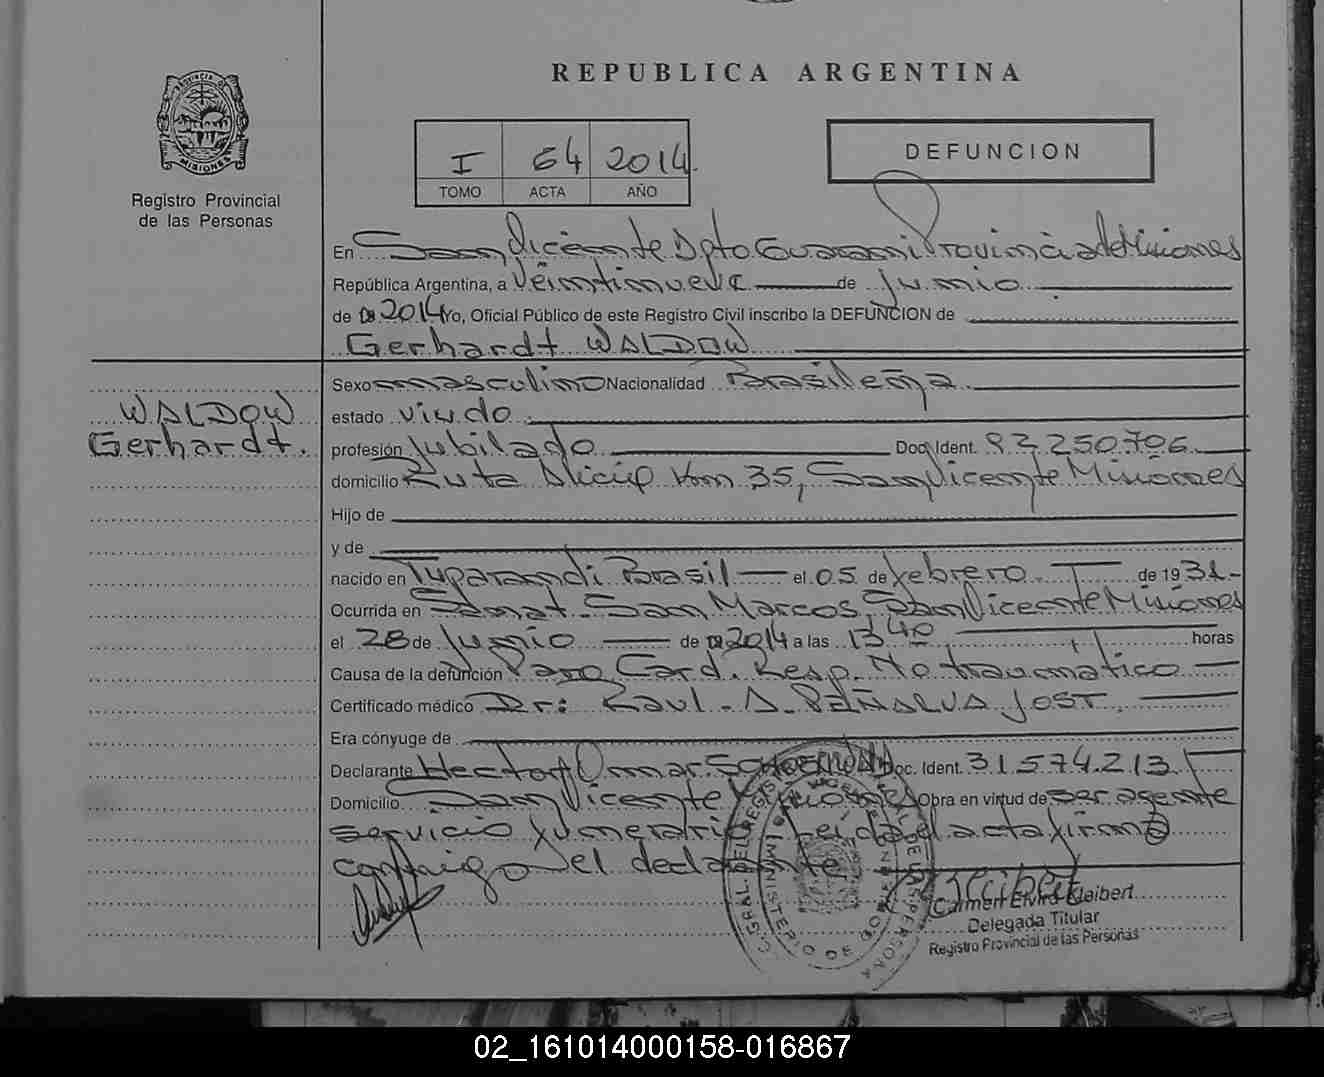 REPUBLICA ARGENTINA
PROVINCIA DE
MISIONES
Registro Provincial
de las Personas
I 64 2014
TOMO ACTA AÑO
DEFUNCION
En San Vicente Dpto Guarani Provincia de Misiones
República Argentina, a Veintinueve de Junio
de 2014 Yo, Oficial Público de este Registro Civil inscribo la DEFUNCION de
Gerhardt WALDOW
WALDOW
Gerhardt.
Sexo masculino Nacionalidad Brasileña
estado viudo
profesión Jubilado Doc. Ident. 92.250.706
domicilio Ruta Km 35, San Vicente Misiones
Hijo de
y de
nacido en Tuparandi Brasil el 05 de febrero de 1931
Ocurrida en Sanat. San Marcos, San Vicente Misiones
el 28 de Junio de 2014 a las 13 40 horas
Causa de la defunción Paro Card. Resp. No traumatico
Certificado médico Dr: Raul. A. PEÑALVA JOST
Era cónyuge de
Declarante Hector Omar Doc. Ident. 31574213
Domicilio San Vicente Misiones Obra en virtud de ser agente
servicio funerario Leida el acta firma
conmigo el declarante
Carmen Elvira Kleibert
Delegada Titular
Registro Provincial de las Personas
02_161014000158-016867